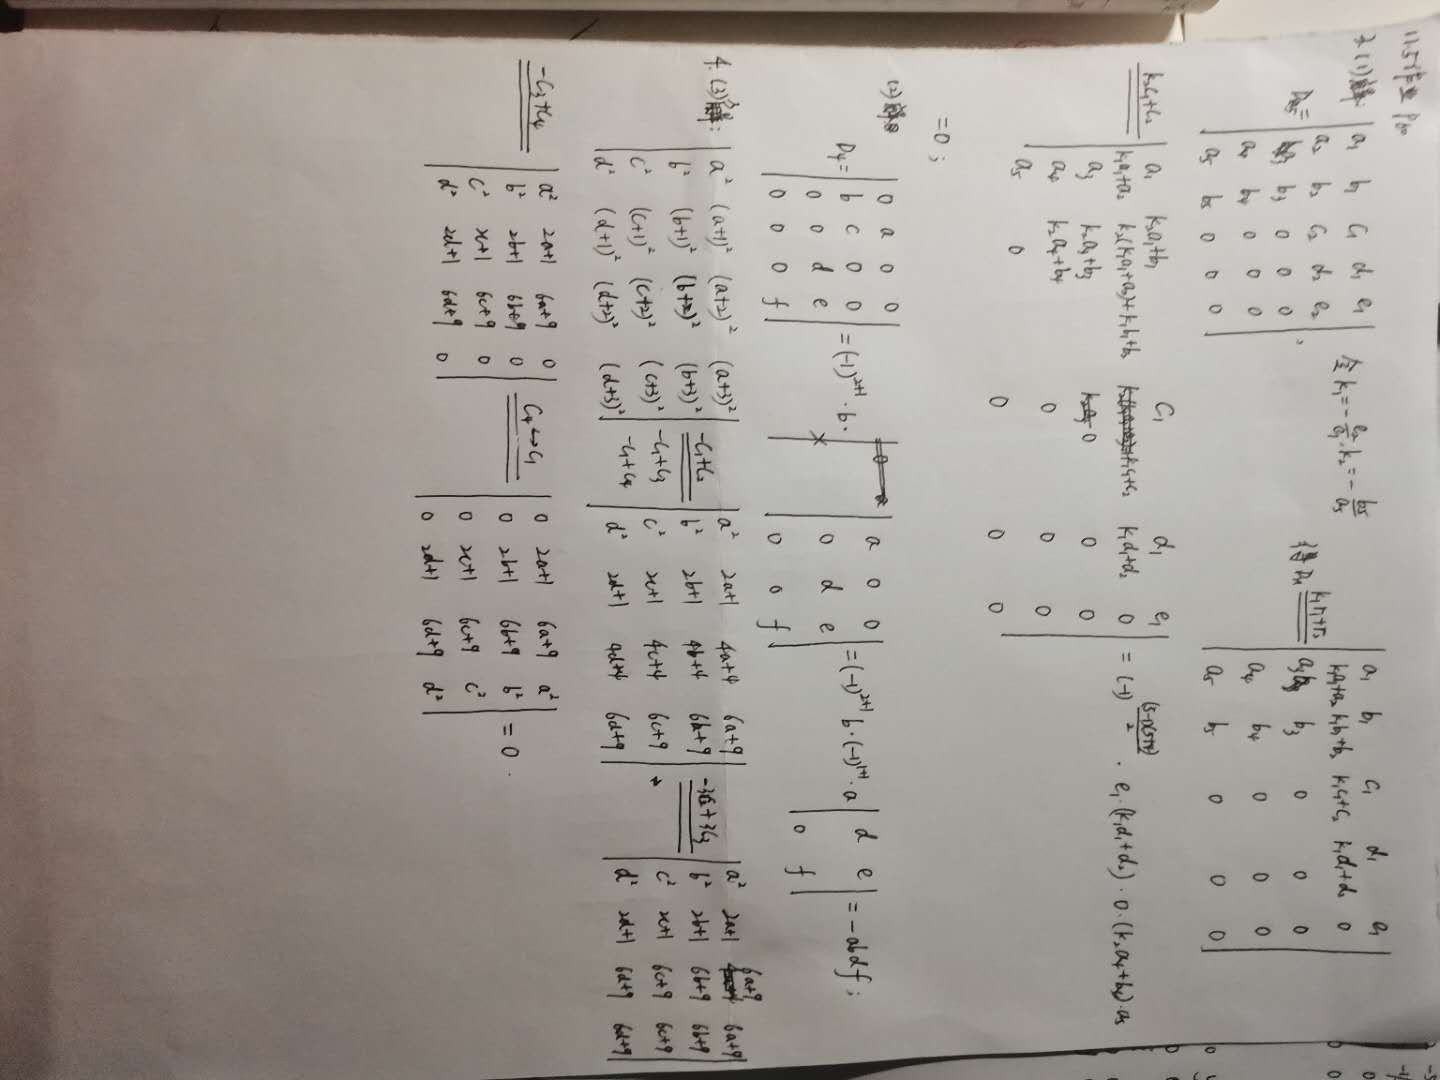 11.5作业 P60
7.(1)解:
D₅= | a₁ b₁ c₁ d₁ e₁ |
| a₂ b₂ c₂ d₂ e₂ |
| a₃ b₃ 0 0 0 |
| a₄ b₄ 0 0 0 |
| a₅ b₅ 0 0 0 | , 令 k₁=-e₂/e₁, k₂=-b₅/a₅ 得 k₁r₁+r₂
| a₁ b₁ c₁ d₁ e₁ |
| k₁a₁+a₂ k₁b₁+b₂ k₁c₁+c₂ k₁d₁+d₂ 0 |
| a₃ b₃ 0 0 0 |
| a₄ b₄ 0 0 0 |
| a₅ b₅ 0 0 0 |
k₂c₁+c₂
| a₁ k₂a₁+b₁ c₁ d₁ e₁ |
| k₁a₁+a₂ k₂(k₁a₁+a₂)+k₁b₁+b₂ k₁c₁+c₂ k₁d₁+d₂ 0 |
| a₃ k₂a₃+b₃ 0 0 0 |
| a₄ k₂a₄+b₄ 0 0 0 |
| a₅ 0 0 0 0 | = (-1) · e₁·(k₁d₁+d₂)·0·(k₂a₄+b₄)·a₅
=0;
(2)解:
D₄= | 0 a 0 0 |
| b c 0 0 |
| 0 0 d e |
| 0 0 0 f | =(-1)²⁺¹·b· | a 0 0 |
| 0 d e |
| 0 0 f | =(-1)²⁺¹b·(-1)¹⁺¹·a | d e |
| 0 f | =-abdf;
4.(3)解:
| a² (a+1)² (a+2)² (a+3)² |
| b² (b+1)² (b+2)² (b+3)² |
| c² (c+1)² (c+2)² (c+3)² |
| d² (d+1)² (d+2)² (d+3)² |
-c₁+c₂
-c₁+c₃
-c₁+c₄
| a² 2a+1 4a+4 6a+9 |
| b² 2b+1 4b+4 6b+9 |
| c² 2c+1 4c+4 6c+9 |
| d² 2d+1 4d+4 6d+9 |
| a² 2a+1 6a+9 6a+9 |
| b² 2b+1 6b+9 6b+9 |
| c² 2c+1 6c+9 6c+9 |
| d² 2d+1 6d+9 6d+9 |
-c₃+c₄
| a² 2a+1 6a+9 0 |
| b² 2b+1 6b+9 0 |
| c² 2c+1 6c+9 0 |
| d² 2d+1 6d+9 0 |
c₄↔c₁
| 0 2a+1 6a+9 a² |
| 0 2b+1 6b+9 b² |
| 0 2c+1 6c+9 c² |
| 0 2d+1 6d+9 d² | =0.